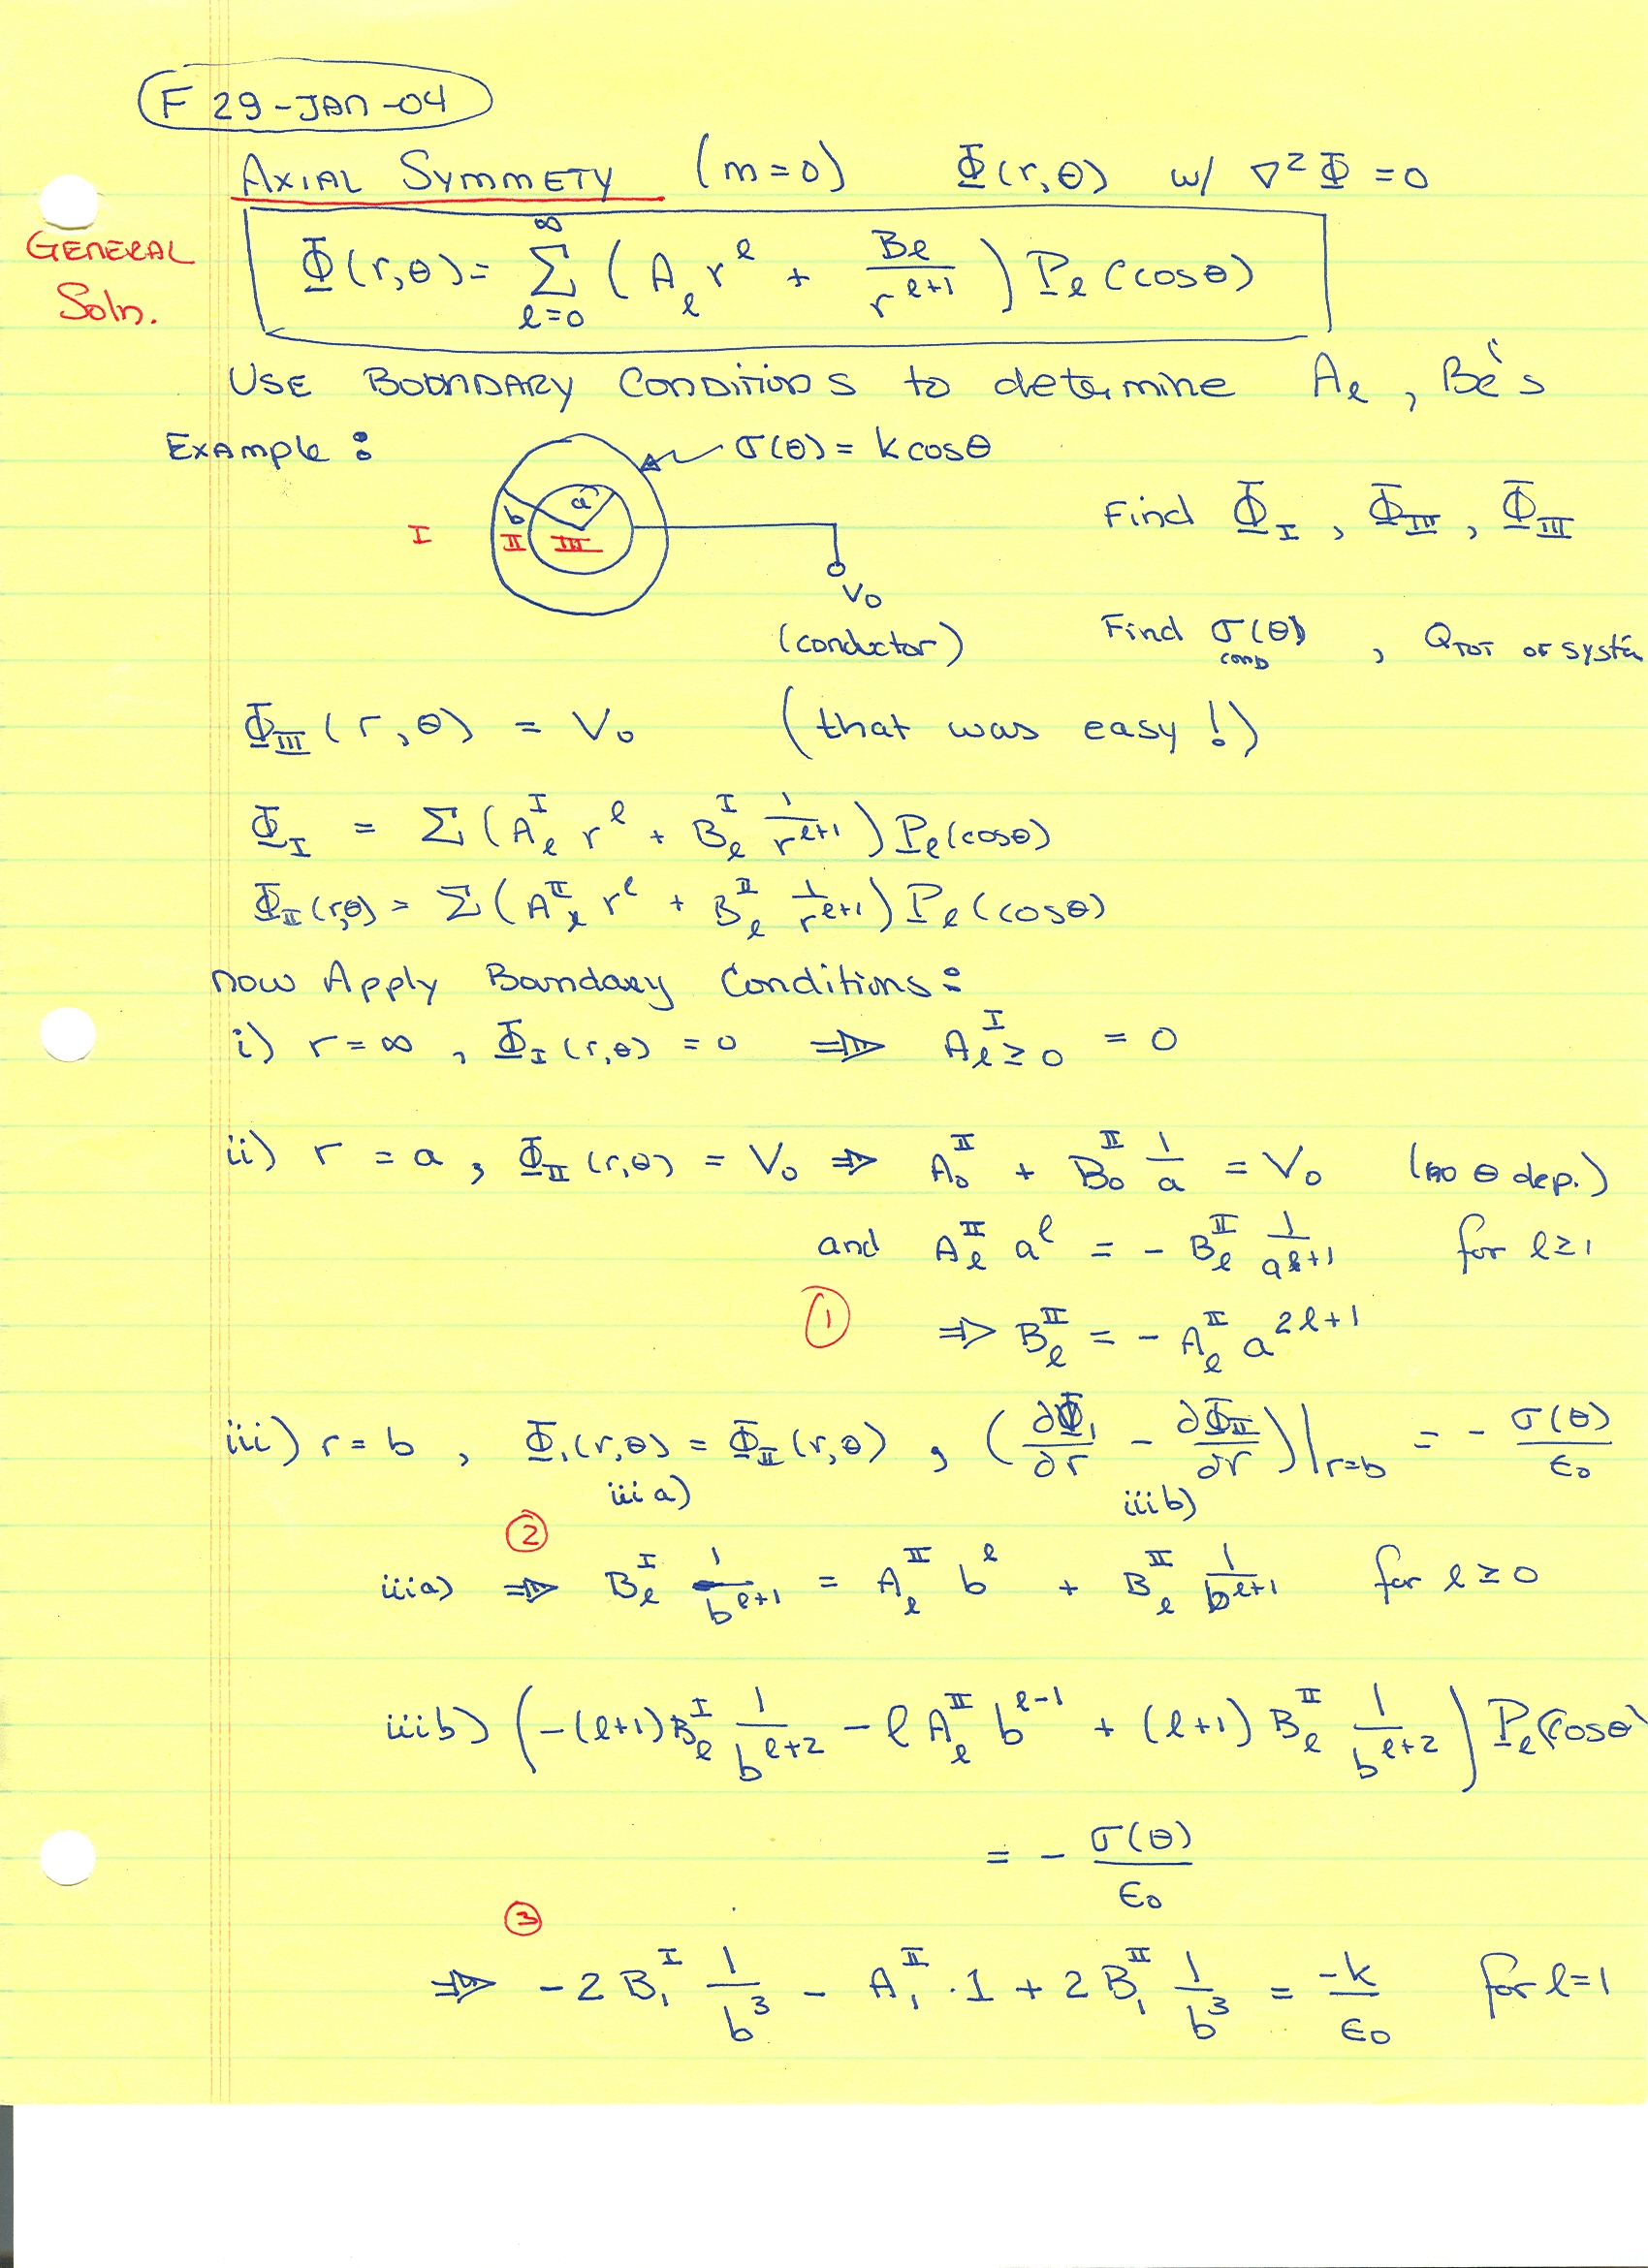 F 29-JAN-04
AXIAL SYMMETY (m=0) Φ(r,θ) w/ ∇²Φ=0
GENERAL Soln.
Φ(r,θ)= ∑_{ℓ=0}^{∞} ( A_ℓ r^ℓ + B_ℓ / r^{ℓ+1} ) P_ℓ(cosθ)
USE BOUNDARY CONDITIONS to determine A_ℓ , B_ℓ's
EXAMPLE : σ(θ) = k cosθ
a
b
I II III Find Φ_I , Φ_II , Φ_III
V₀
(conductor) Find σ(θ)_cond , Q_TOT OF SYSTEM
Φ_III (r,θ) = V₀ (that was easy!)
Φ_I = ∑ (A_ℓ^I r^ℓ + B_ℓ^I 1/r^{ℓ+1}) P_ℓ(cosθ)
Φ_II(r,θ) = ∑ (A_ℓ^II r^ℓ + B_ℓ^II 1/r^{ℓ+1}) P_ℓ(cosθ)
now Apply Boundary Conditions:
i) r=∞ , Φ_I(r,θ) = 0 ⇒ A^I_{ℓ≥0} = 0
ii) r = a , Φ_II(r,θ) = V₀ ⇒ A₀^II + B₀^II 1/a = V₀ (no θ dep.)
and A_ℓ^II a^ℓ = - B_ℓ^II 1/a^{ℓ+1} for ℓ≥1
① ⇒ B_ℓ^II = - A_ℓ^II a^{2ℓ+1}
iii) r=b , Φ_I(r,θ) = Φ_II(r,θ) , (∂Φ_I/∂r - ∂Φ_II/∂r)|_{r=b} = - σ(θ)/ε₀
iiia) iiib)
②
iiia) ⇒ B_ℓ^I 1/b^{ℓ+1} = A_ℓ^II b^ℓ + B_ℓ^II 1/b^{ℓ+1} for ℓ≥0
iiib) (-(ℓ+1)B_ℓ^I 1/b^{ℓ+2} - ℓ A_ℓ^II b^{ℓ-1} + (ℓ+1) B_ℓ^II 1/b^{ℓ+2}) P_ℓ(cosθ)
= - σ(θ)/ε₀
③
⇒ -2 B₁^I 1/b³ - A₁^II · 1 + 2 B₁^II 1/b³ = -k/ε₀ for ℓ=1